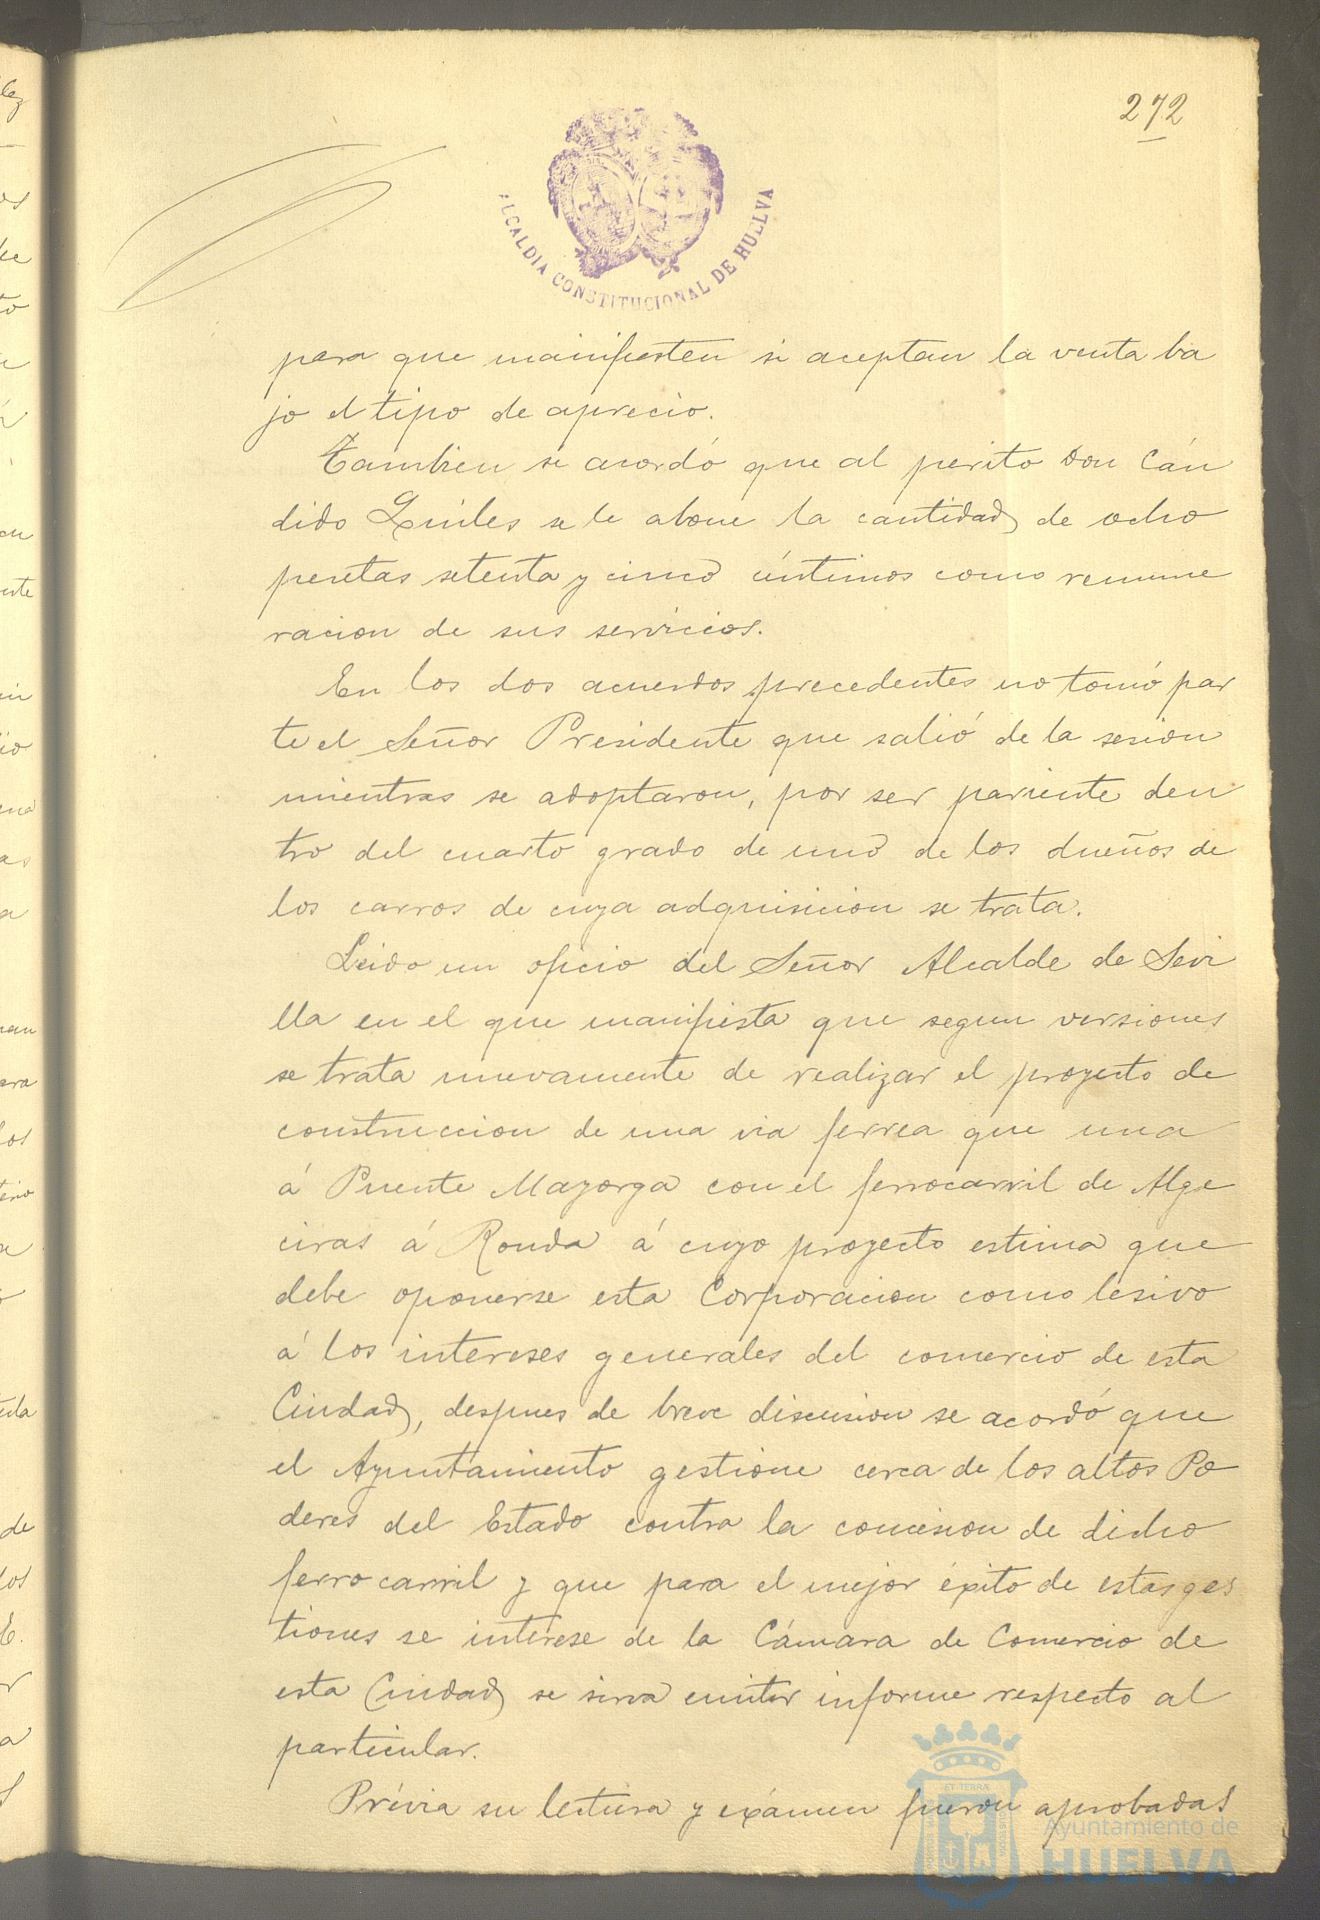 272
ALCALDIA CONSTITUCIONAL DE HUELVA
para que manifiesten si aceptan la venta ba
jo el tipo de aprecio.
Tambien se acordó que al perito don Cán
dido Quiles se le abone la cantidad de ocho
pesetas setenta y cinco céntimos como remune
racion de sus servicios.
En los dos acuerdos precedentes no tomó par
te el Señor Presidente que salió de la sesion
mientras se adoptaron, por ser pariente den
tro del cuarto grado de uno de los dueños de
los carros de cuya adquisicion se trata.
Leido un oficio del Señor Alcalde de Sevi
lla en el que manifiesta que segun versiones
se trata nuevamente de realizar el proyecto de
construccion de una via ferrea que una
á Puente Mayorga con el ferrocarril de Alge
ciras á Ronda á cuyo proyecto estima que
debe oponerse esta Corporacion como lesivo
á los intereses generales del comercio de esta
Ciudad, despues de breve discusion se acordó que
el Ayuntamiento gestione cerca de los altos Po
deres del Estado contra la concesion de dicho
ferrocarril y que para el mejor éxito de estas ges
tiones se interese de la Cámara de Comercio de
esta Ciudad se sirva emitir informe respecto al
particular.
Prévia su lectura y exámen fueron aprobadas
Ayuntamiento de
HUELVA